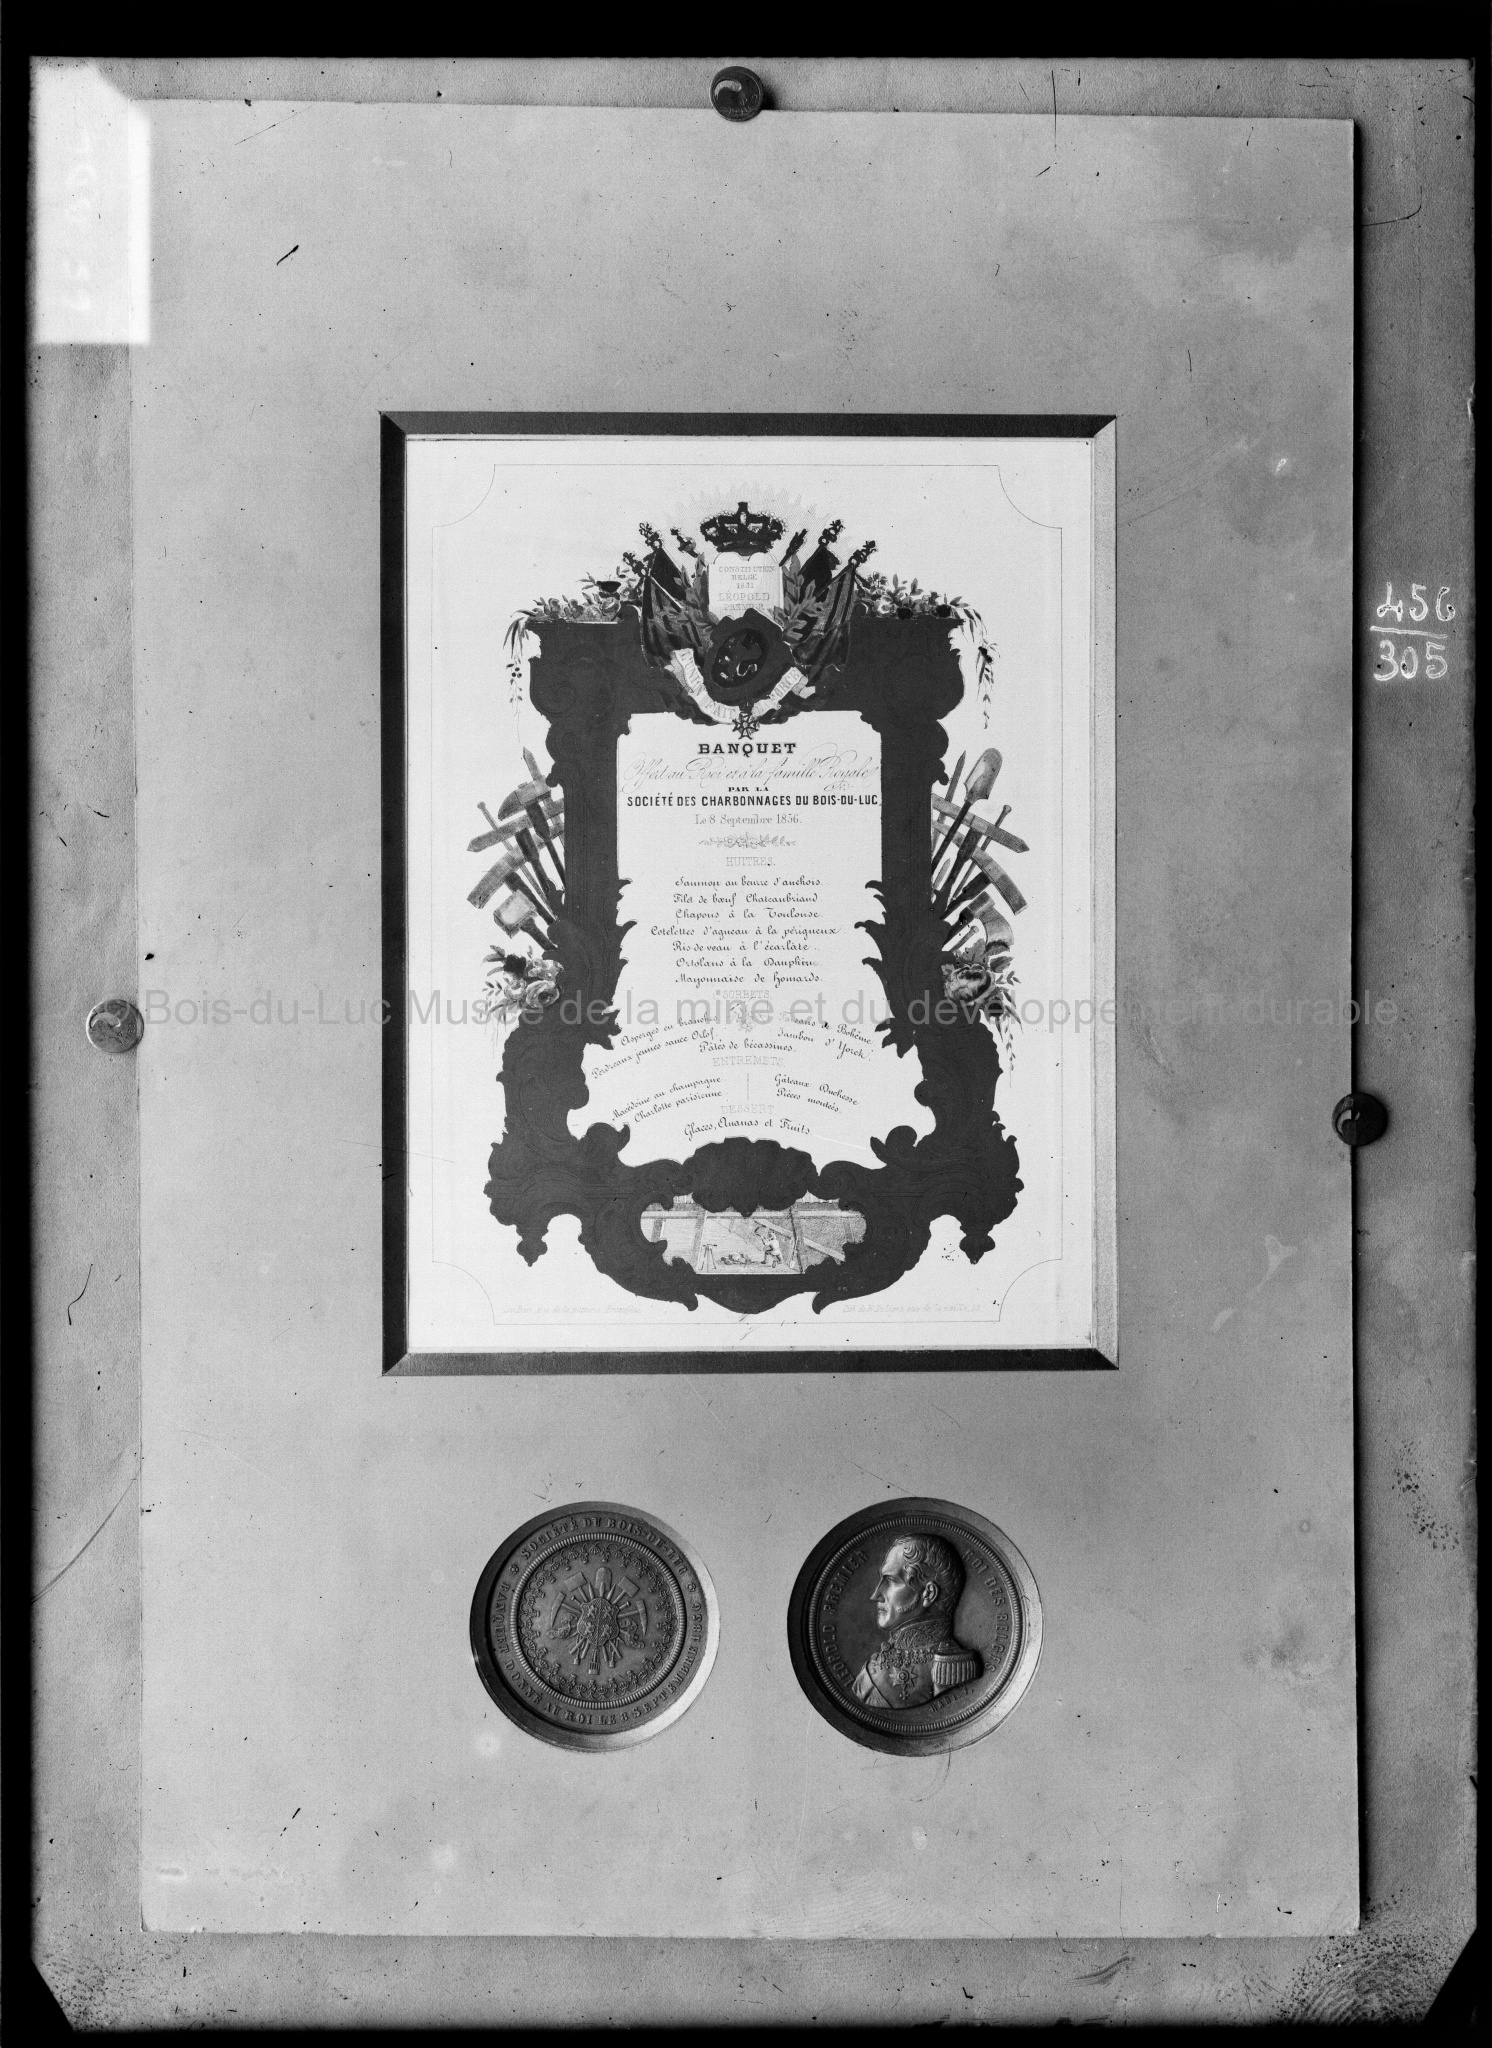 CONSTITUTION
BELGE
1831
LÉOPOLD
PREMIER
L'UNION FAIT LA FORCE
BANQUET
Offert au Roi et à la famille Royale
PAR LA
SOCIÉTÉ DES CHARBONNAGES DU BOIS-DU-LUC
Le 8 Septembre 1856.
HUITRES.
Saumon au beurre d'anchois.
Filet de bœuf Chateaubriand
Chapons à la Toulouse.
Cotelettes d'agneau à la périgueux.
Ris de veau à l'écarlate.
Ortolans à la Dauphine
Mayonnaise de homards.
SORBETS.
Asperges en branches
Perdreaux jeunes sauce Orlof
Faisans de Bohême
Jambon d'Yorck.
Pâtés de bécassines.
ENTREMETS.
Macédoine au champagne.
Charlotte parisienne
Gâteaux Duchesse
Pièces montées.
DESSERT
Glaces, Ananas et Fruits.
456
305
Bois-du-Luc Musée de la mine et du développement durable
SOCIÉTÉ DU BOIS-DU-LUC
BANQUET DONNÉ AU ROI LE 8 SEPTEMBRE 1856
LEOPOLD PREMIER ROI DES BELGES